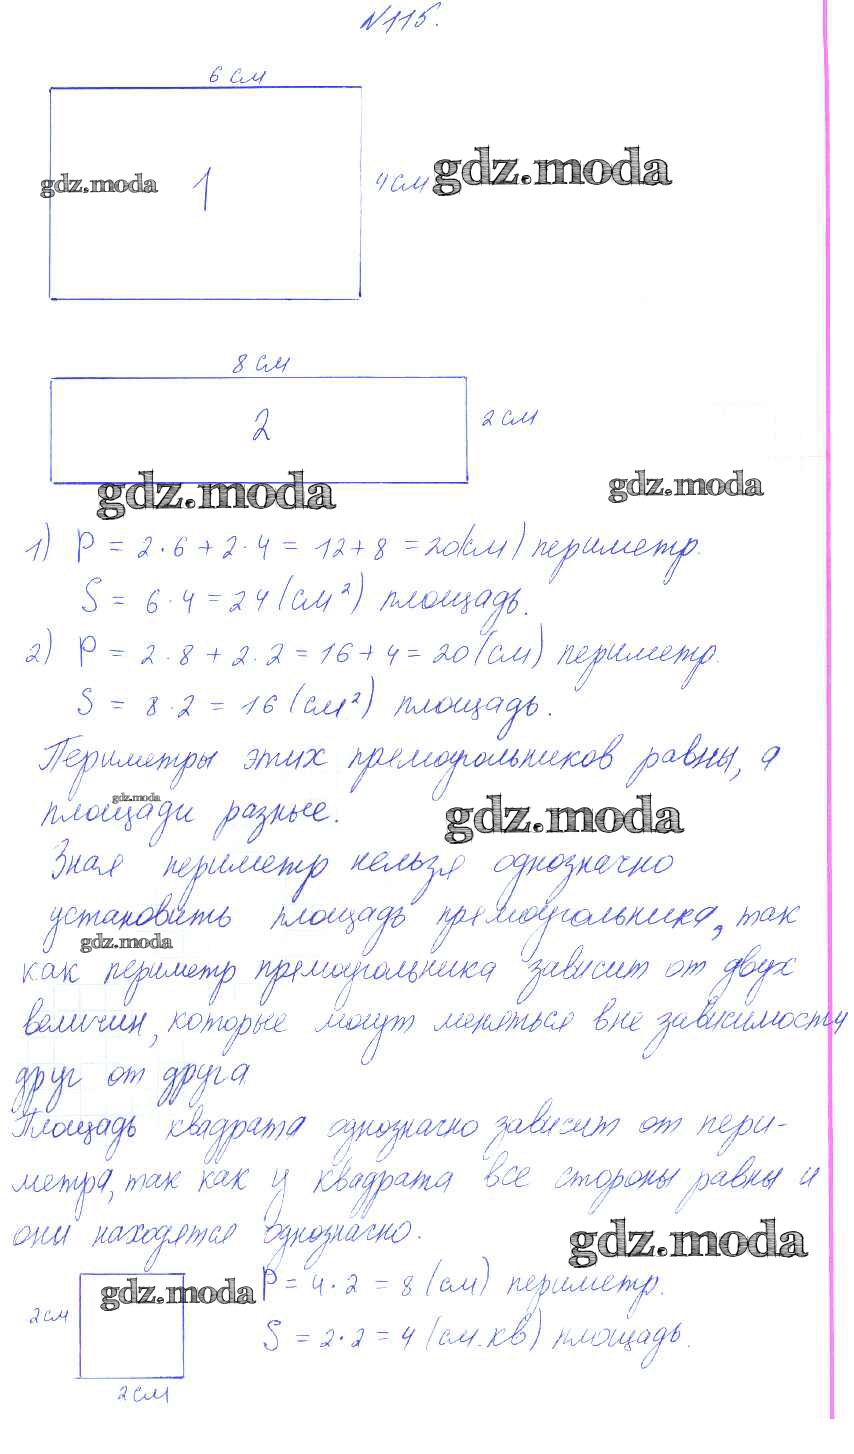 №115.
6 см
gdz.moda 1 4 см gdz.moda
8 см
2 2 см
gdz.moda gdz.moda
1) P = 2·6 + 2·4 = 12 + 8 = 20(см) периметр.
S = 6·4 = 24 (см²) площадь.
2) P = 2·8 + 2·2 = 16 + 4 = 20 (см) периметр.
S = 8·2 = 16 (см²) площадь.
Периметры этих прямоугольников равны, а
gdz.moda
площади разные.
gdz.moda
Зная периметр нельзя однозначно
установить площадь прямоугольника, так
gdz.moda
как периметр прямоугольника зависит от двух
величин, которые могут меняться вне зависимости
друг от друга
Площадь квадрата однозначно зависит от пери-
метра, так как у квадрата все стороны равны и
они находятся однозначно.
gdz.moda
gdz.moda P = 4·2 = 8 (см) периметр.
2 см
S = 2·2 = 4 (см.кв) площадь.
2 см